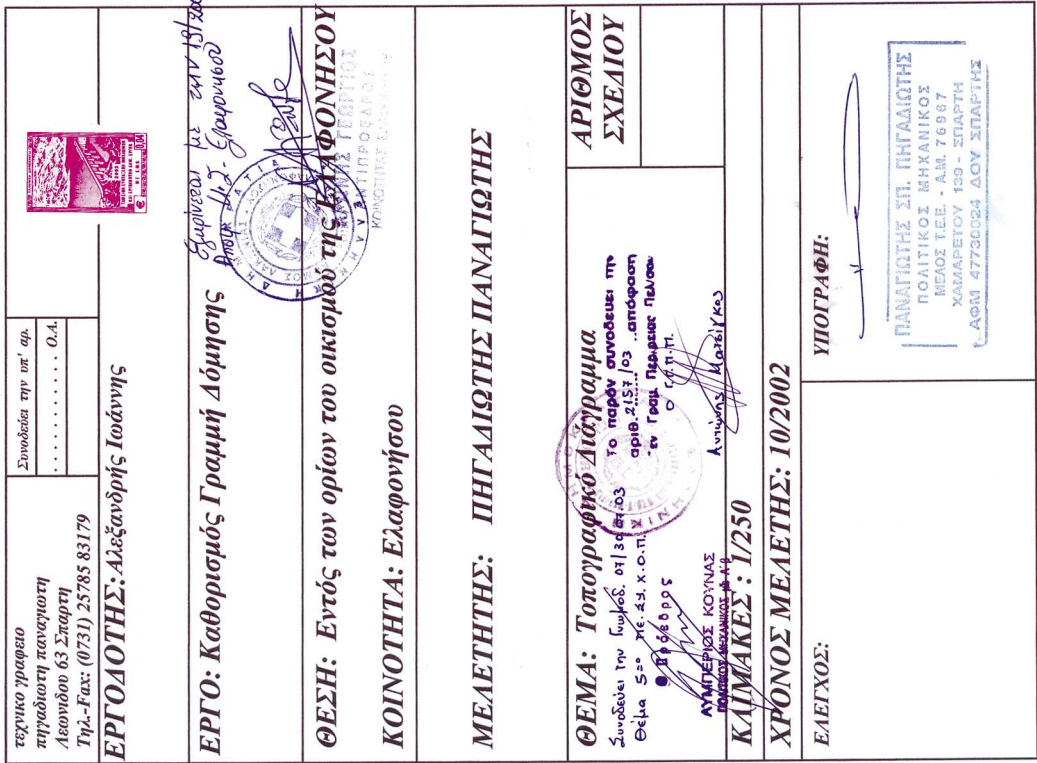 τεχνικο γραφειο
πηγαδιοτη παναγιοτη
Λεονιδου 63 Σπαρτη
Τηλ.-Fax: (0731) 25785 83179
Συνοδεύει την υπ' αρ.
. . . . . . . . . . . . Ο.Α.
ΕΡΓΟΔΟΤΗΣ: Αλεξανδρής Ιωάννης
ΕΡΓΟ: Καθορισμός Γραμμή Δόμησης
Εγκρίνεται με την 19/
Ελαφονήσου
ΘΕΣΗ: Εντός των ορίων του οικισμού της ΕΛΑΦΟΝΗΣΟΥ
ΓΕΩΡΓΙΟΣ
ΑΝΤΙΠΡΟΕΔΡΟΣ
ΚΟΙΝΟΤΗΤΑΣ
ΚΟΙΝΟΤΗΤΑ: Ελαφονήσου
ΜΕΛΕΤΗΤΗΣ: ΠΗΓΑΔΙΩΤΗΣ ΠΑΝΑΓΙΩΤΗΣ
ΘΕΜΑ: Τοπογραφικό Διάγραμμα
ΑΡΙΘΜΟΣ
ΣΧΕΔΙΟΥ
Συνοδεύει την Γνωμοδ. 07/30.07.03
Θέμα 5=º ΠΕ. Σ.Χ.Ο.Π.
Ο Πρόεδρος
ΛΥΜΠΕΡΙΟΣ ΚΟΥΝΑΣ
ΠΟΛΙΤΙΚΟΣ ΜΗΧΑΝΙΚΟΣ με Α'β
Το παρόν συνοδεύει την
αριθ. 2157/03 απόφαση
Γεν Γραμ. Περιφειας Πελ/σου
Ο Γ.Γ.Π.Π.
Αντώνης Ματσίγκος
ΚΛΙΜΑΚΕΣ : 1/250
ΧΡΟΝΟΣ ΜΕΛΕΤΗΣ: 10/2002
ΕΛΕΓΧΟΣ:
ΥΠΟΓΡΑΦΗ:
ΠΑΝΑΓΙΩΤΗΣ ΣΠ. ΠΗΓΑΔΙΩΤΗΣ
ΠΟΛΙΤΙΚΟΣ ΜΗΧΑΝΙΚΟΣ
ΜΕΛΟΣ Τ.Ε.Ε. - Α.Μ. 76967
ΧΑΜΑΡΕΤΟΥ 139 - ΣΠΑΡΤΗ
ΑΦΜ 47730024 ΔΟΥ ΣΠΑΡΤΗΣ